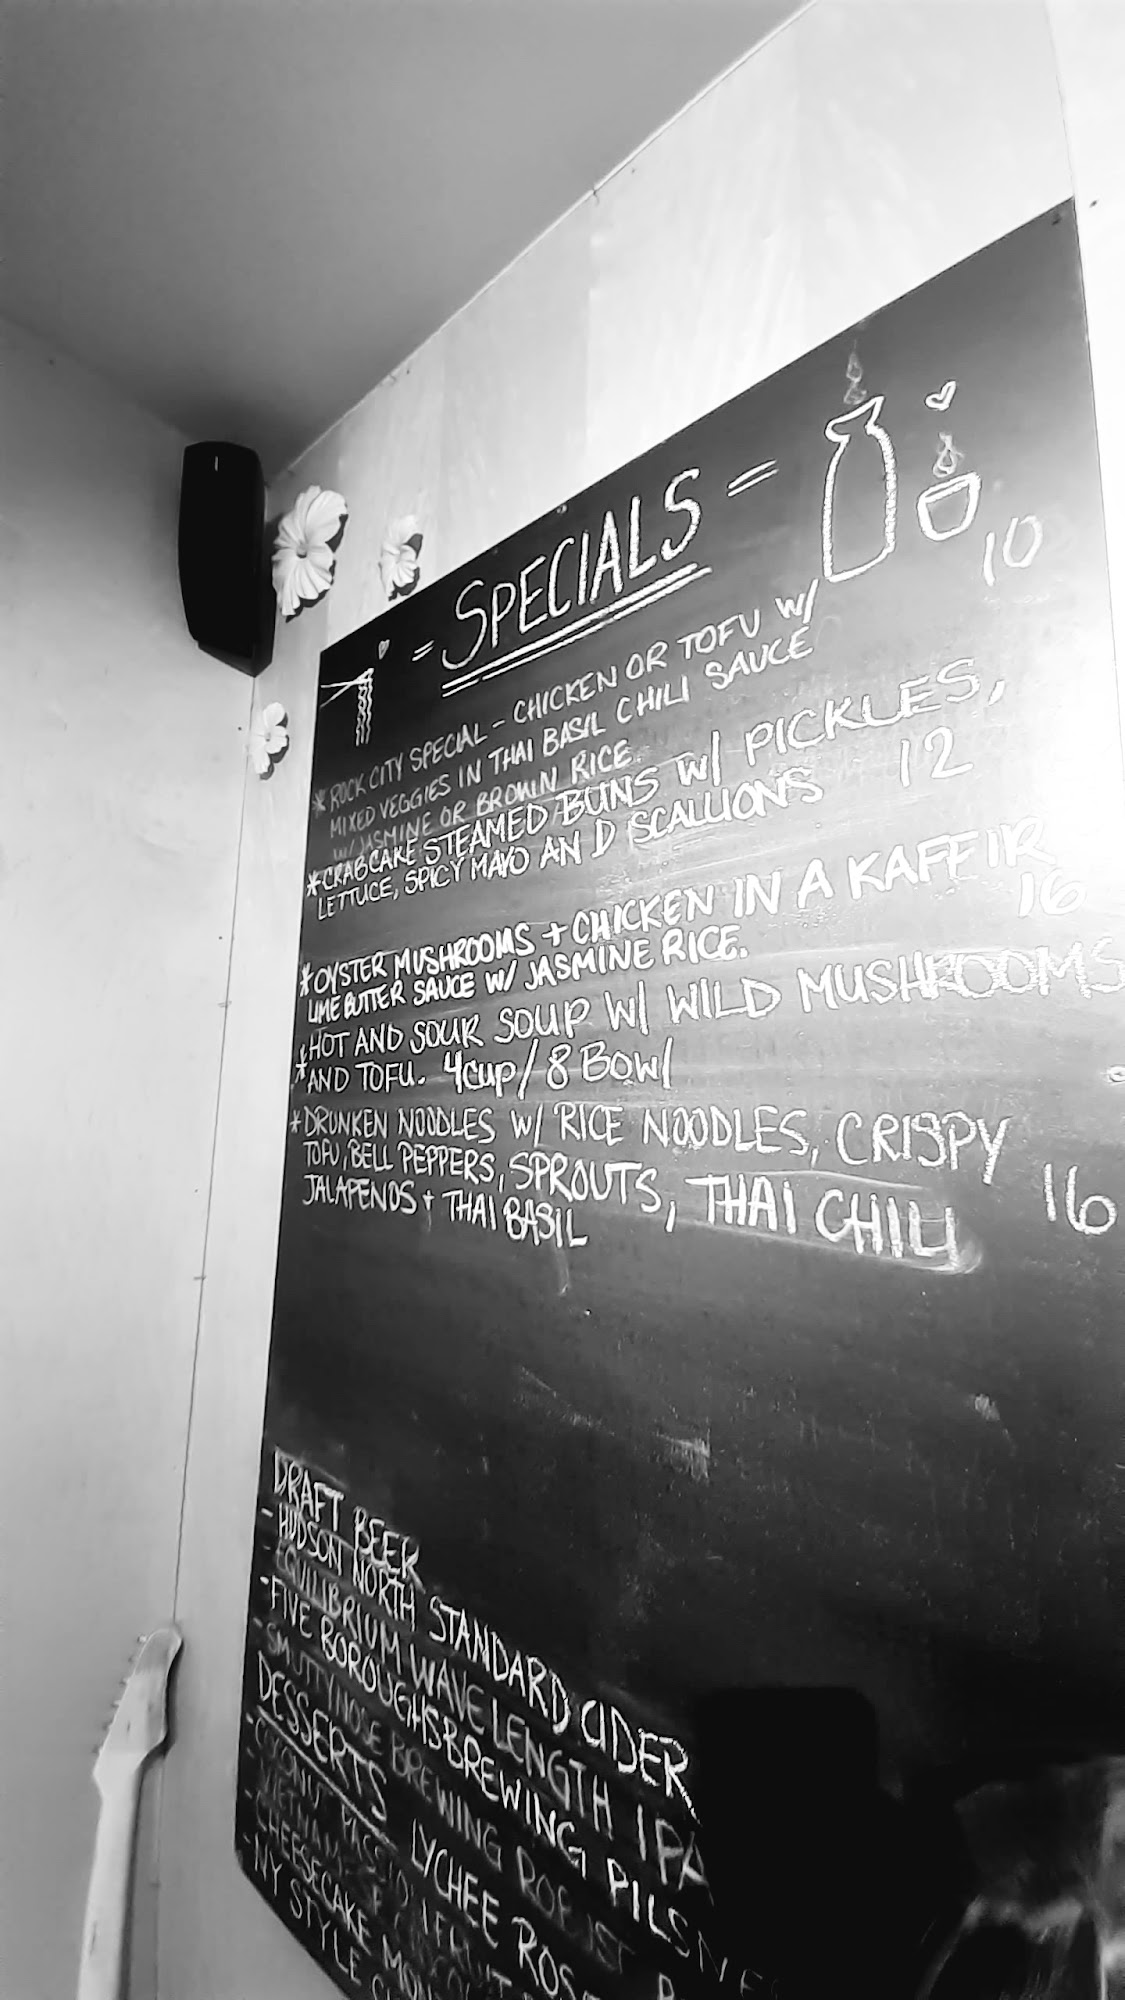 = SPECIALS =
* ROCK CITY SPECIAL - CHICKEN OR TOFU W/ 10
MIXED VEGGIES IN THAI BASIL CHILI SAUCE
W/ JASMINE OR BROWN RICE
* CRABCAKE STEAMED BUNS W/ PICKLES,
LETTUCE, SPICY MAYO AND SCALLIONS 12
* OYSTER MUSHROOMS + CHICKEN IN A KAFFIR
LIME BUTTER SAUCE W/ JASMINE RICE. 16
* HOT AND SOUR SOUP W/ WILD MUSHROOMS
AND TOFU. 4cup/8 Bowl
* DRUNKEN NOODLES W/ RICE NOODLES, CRISPY
TOFU, BELL PEPPERS, SPROUTS, THAI CHILI 16
JALAPENOS + THAI BASIL
DRAFT BEER
- HUDSON NORTH STANDARD CIDER
- EQUILIBRIUM WAVELENGTH IPA
- FIVE BOROUGHS BREWING PILSNE
- SMUTTYNOSE BREWING
DESSERTS
- COCONUT LYCHEE
- VIETNAMESE
- CHEESECAKE
- NY STYLE